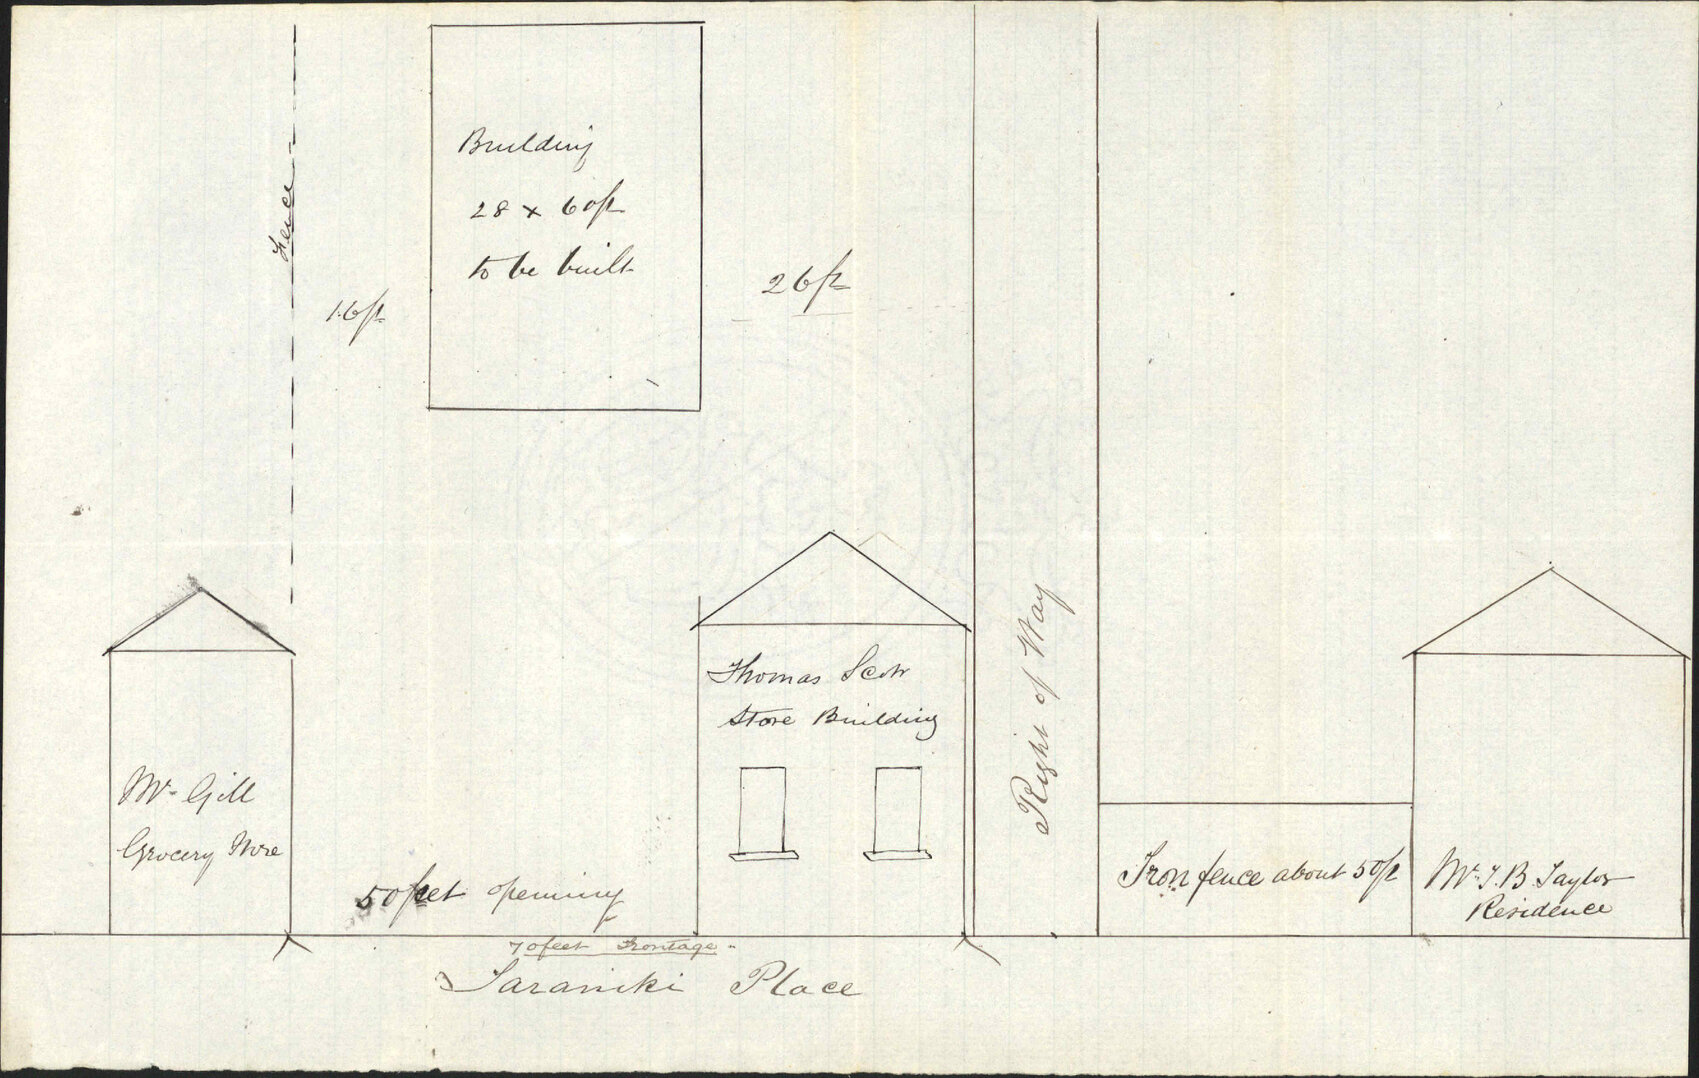 Building
28 x 60ft
to be built
Fence
16ft
26ft
Thomas Scott
Store Building
Right of Way
Mr Gill
Grocery Store
50 feet opening
Iron fence about 50ft
Mr. T. B. Taylor
Residence
70 feet Frontage
Place